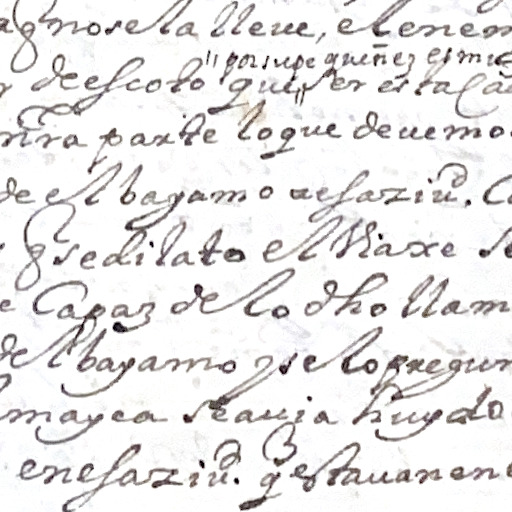 q no se la lleue, el enem
"por su pequeñez es mu
de escoto que ser esta Ca
nr̃a parte lo que deuemo
de el bayamo
q se dilato el Viaxe se
Capaz de lo dho llam
del bayamo y se lo pregun
mayca se auia huydo
en esa ziud. q estauan en